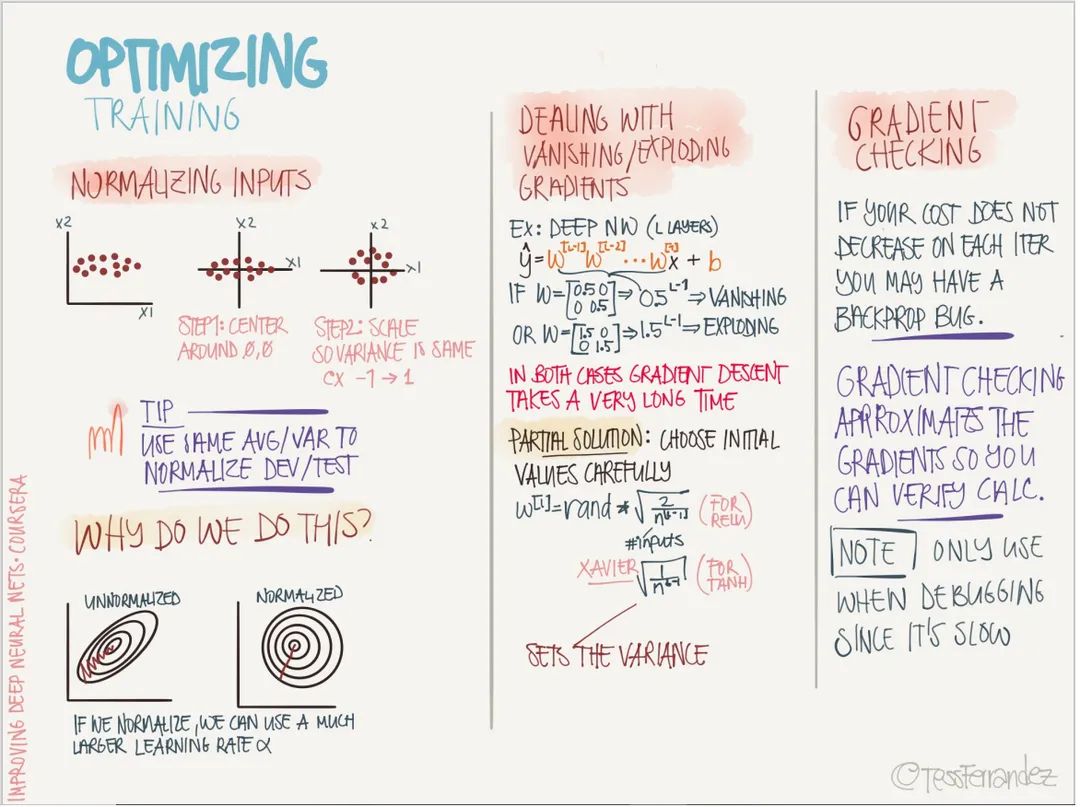 OPTIMIZING
TRAINING
NORMALIZING INPUTS
X2
X1
X2
X1
X2
X1
STEP1: CENTER
AROUND 0,0
STEP2: SCALE
SO VARIANCE IS SAME
EX -1 → 1
TIP
USE SAME AVG/VAR TO
NORMALIZE DEV/TEST
WHY DO WE DO THIS?
UNNORMALIZED
NORMALIZED
IF WE NORMALIZE, WE CAN USE A MUCH
LARGER LEARNING RATE α
DEALING WITH
VANISHING/EXPLODING
GRADIENTS
EX: DEEP NW (L LAYERS)
ŷ = W[L-1] W[L-2] ... W[1] X + b
IF W = [0.5 0 0 0.5] ⇒ 0.5^L-1 ⇒ VANISHING
OR W = [1.5 0 0 1.5] ⇒ 1.5^L-1 ⇒ EXPLODING
IN BOTH CASES GRADIENT DESCENT
TAKES A VERY LONG TIME
PARTIAL SOLUTION: CHOOSE INITIAL
VALUES CAREFULLY
W[l] = rand * √ 2/n[l-1] (FOR RELU)
#inputs
XAVIER √ 1/n[l-1] (FOR TANH)
SETS THE VARIANCE
GRADIENT
CHECKING
IF YOUR COST DOES NOT
DECREASE ON EACH ITER
YOU MAY HAVE A
BACKPROP BUG.
GRADIENT CHECKING
APPROXIMATES THE
GRADIENTS SO YOU
CAN VERIFY CALC.
NOTE ONLY USE
WHEN DEBUGGING
SINCE IT'S SLOW
IMPROVING DEEP NEURAL NETS · COURSERA
©TessFerrandez